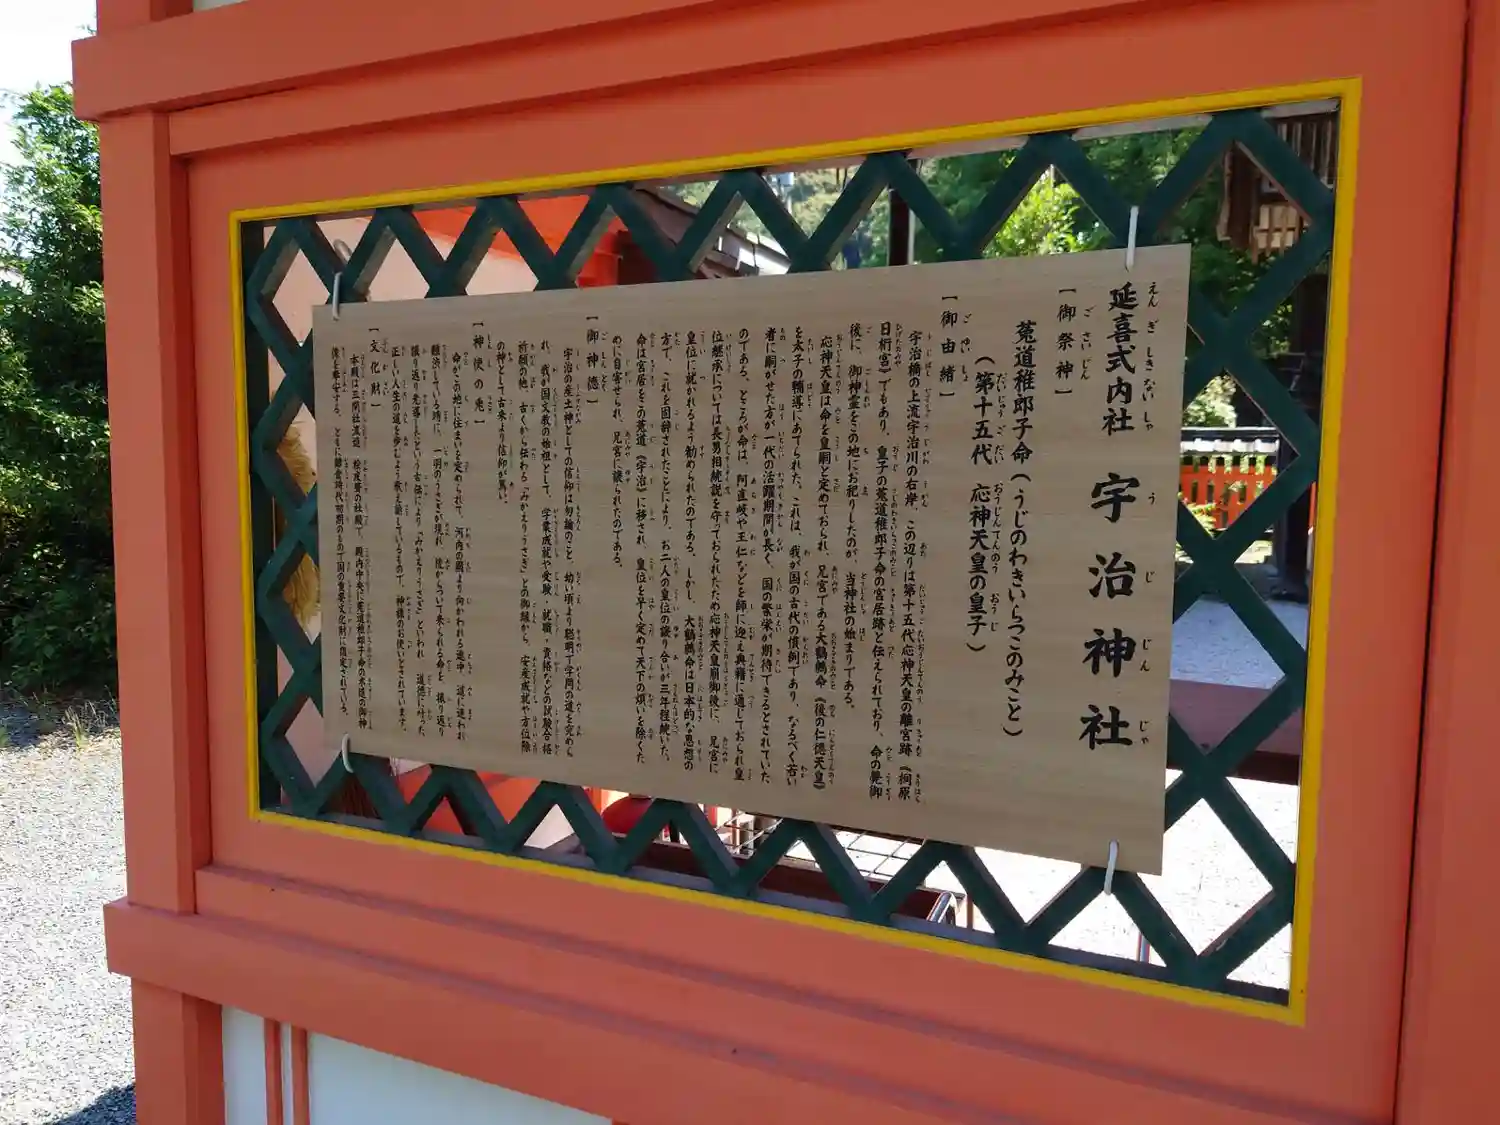 延喜式内社 宇治神社
【御祭神】
菟道稚郎子命(うじのわきいらつこのみこと)
(第十五代 応神天皇の皇子)
【御由緒】
宇治橋の上流宇治川の右岸、この辺りは第十五代応神天皇の離宮跡『桐原
日桁宮』でもあり、皇子の菟道稚郎子命の宮居跡と伝えられており、命の薨御
後に、御神霊をこの地にお祀りしたのが、当神社の始まりである。
応神天皇は命を皇嗣と定めておられ、兄宮である大鷦鷯命(後の仁徳天皇)
を太子の輔導にあてられた。これは、我が国の古代の慣例であり、なるべく若い
者に嗣がせた方が一代の活躍期間が長く、国の繁栄が期待できるとされていた
のである。ところが命は、阿直岐や王仁などを師に迎え典籍に通じておられ皇
位継承については長男相続説を守ておられたため応神天皇崩御後に、兄宮に
皇位に就かれるよう勧められたのである。しかし、大鷦鷯命は日本的な思想の
方で、これを固辞されたことにより、お二人の皇位の譲り合いが三年程続いた。
命は宮居をこの菟道《宇治》に移され、皇位を早く定めて天下の煩いを除くた
めに自害せられ、兄宮に譲られたのである。
【御神徳】
宇治の産土神としての信仰は勿論のこと、幼い頃より聡明で学問の道を究めら
れ、我が国文教の始祖として、学業成就や受験、就職、資格などの試験合格
祈願の他、古くから伝わる「みかえりうさぎ」との御縁から、安産成就や方位除
の神として古来より信仰が篤い。
【神使の兎】
命がこの地に住まいを定められて、河内の国より向かわれる途中、道に迷われ
難渋している時に、一羽のうさぎが現れ、後からついて来られる命を、振り返り
振り返り先導したという古伝により「みかえりうさぎ」といわれ、道徳に叶った
正しい人生の道を歩むよう教え諭しているもので、神様のお使いとされています。
【文化財】
本殿は三間社流造、桧皮葺の社殿で、殿内中央に菟道稚郎子命の木造の御神
像を奉安する。ともに鎌倉時代初期のもので国の重要文化財に指定されている。